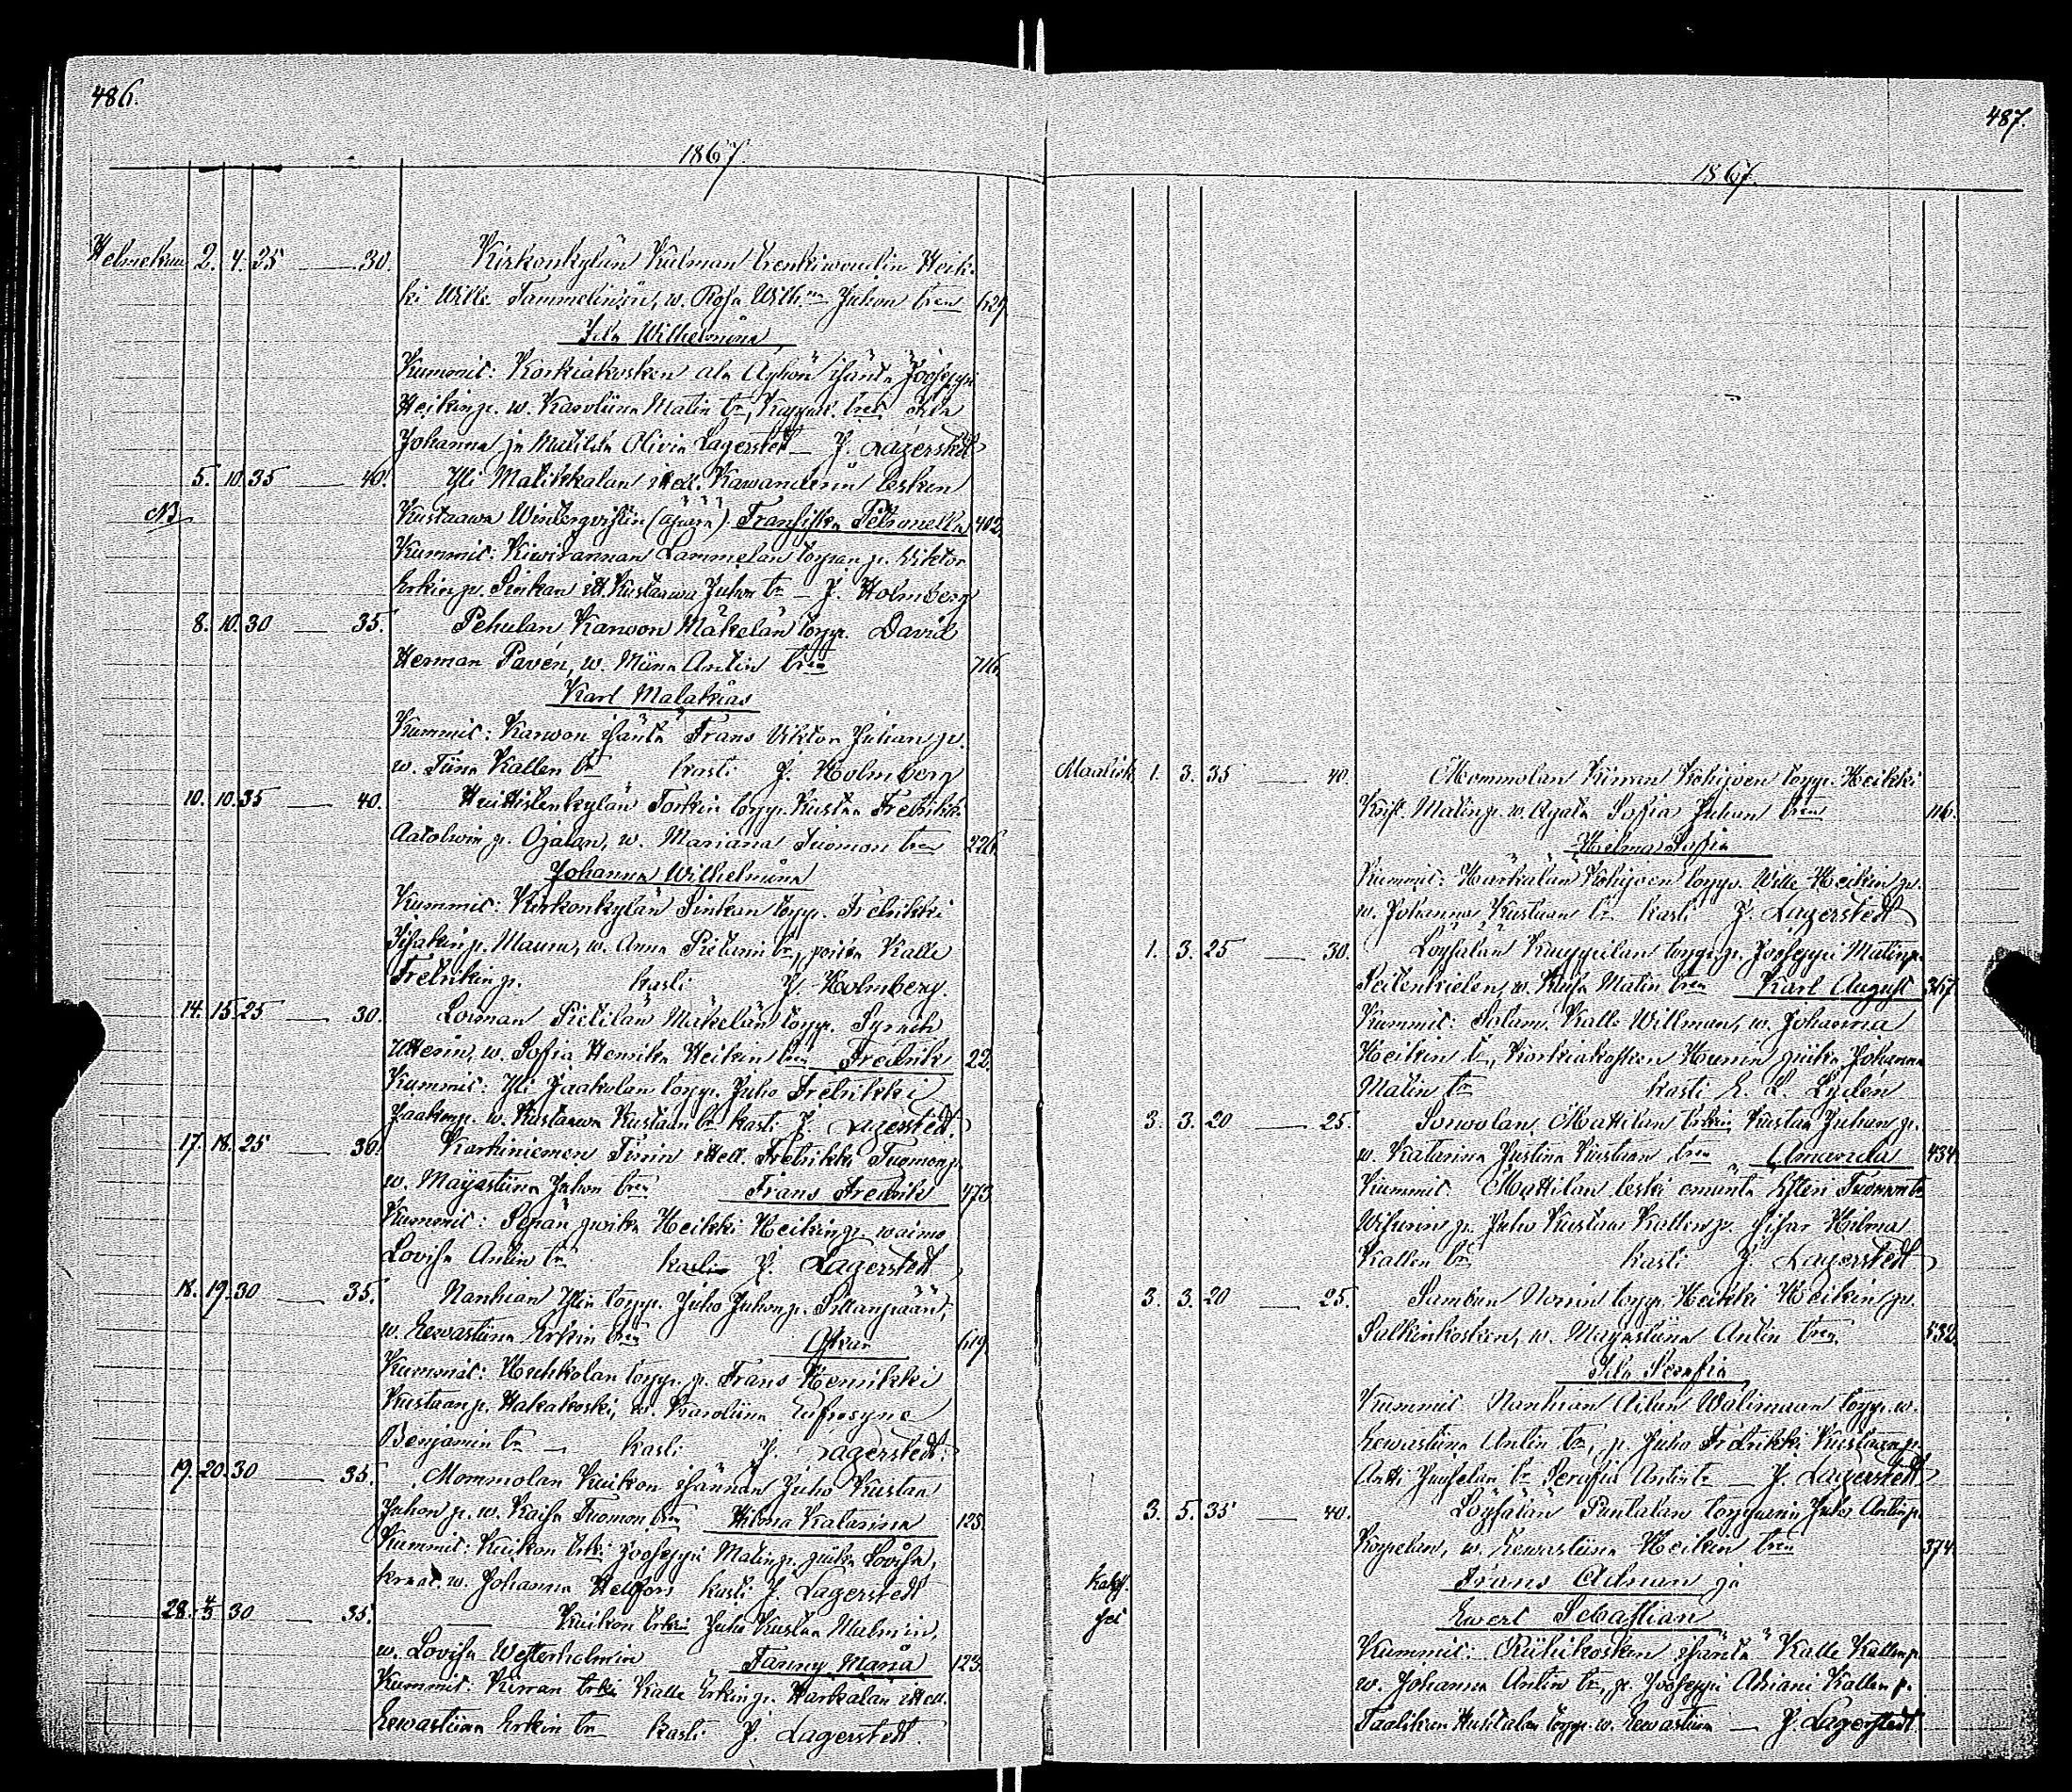 486.
1867.
Helmekuu 2. 4. 35 — 30. Kirkonkylän Kulman trenkiwoudin Heik-
ki Wille Tammelinin, w. Rosa Wilh:na Juhon tren 629
Ida Wilhelmina
Kummit: Korkiakosken ala Äijhön isäntä Jooseppi
Heikin p. w. Karoliina Matin tr, Kappal. tret Ida
Johanna ja Matilda Olivia Lagerstedt — J. Lagerstedt
5. 10. 35 — 40. Yli Matikkalan itell. Kawanderin lesken
NB Kustaawa Winterqvistin (äpärä). Fransiska Petronella 402.
Kummit: Kiwirannan Lammelan torpan p. Viktor
Erkin p. Sinkan itt. Kustaawa Juhon tr — J. Holmberg
8. 10. 30 — 35. Pehulan Karwon Mäkelän torpp. David
Herman Pavén, w. Miina Antin tren 716.
Karl Malakias
Kummit: Karwon isäntä Frans Viktor Juhan p.
w. Tiina Kallen tr kasti J. Holmberg
10. 10. 35 — 40. Huittistenkylän Torkin torpp. Kustaa Fredrikki
Aatolwin p. Ojalan, w. Mariana Tuomon tren 226.
Johanna Wilhelmina
Kummit: Kirkonkylän Sinkan torpp. Fredrikki
Iisakin p. Mauru, w. Anna Pietarin tr, poika Kalle
Fredrikin p. kasti J. Holmberg.
14. 15. 25 — 30. Loiman Pietilän Mäkelän torpp. Syrach
Utterin, w. Sofia Henrika Heikin tren Fredrik 22.
Kummit: Yli Jaakolan torpp. Juho Fredrikki
Jaakon p. w. Kustaawa Kustaan tr kasti J. Lagerstedt.
17. 18. 25 — 30. Korkiniemen Tinin itell. Fredrikki Tuomon p.
w. Majastiina Juhon tren Frans Fredrik 473.
Kummit: Sepän poika Heikki Heikin p. waimo
Lovisa Antin tr kasti J. Lagerstedt
18. 19. 30 — 35. Nanhian Ylin torpp. Juho Juhon p. Sillanpään,
w. Eewastiina Erkin tren Oskar 619.
Kummit: Uschkolan torpp. p. Frans Henrikki
Kustaan p. Hakakoski, w. Karoliina Eufrosyne
Benjamin tr — kasti J. Lagerstedt.
19. 20. 30 — 35. Mommolan Kuikon isännän Juho Kustaa
Juhon p. w. Kaisa Tuomon tren Hilma Katarina 125.
Kummit: Kuikon trki Jooseppi Matin p. piika Lovisa,
kraat. w. Johanna Helfors kasti J. Lagerstedt
28. 4/3 30 — 35. — Kuikon trkin Juho Kustaa Malmin,
w. Lovisa Westerholmin Fanny Maria 123.
Kummit: Kirran trki Kalle Erkin p. Härkälän itell.
Eewastiina Erkin tr kasti J. Lagerstedt.
487.
1867.
Maalisk. 1. 3. 35 — 40. Mommolan Kiiman Kohijoen torpp. Heikki
Krist. Matin p. w. Agata Sofia Juhan tren 116.
Helma Sofia
Kummit: Härkälän Kohijoen torpp. Wille Heikin p.
w. Johanna Kustaan tr kasti J. Lagerstedt
1. 3. 25 — 30. Löysälän Kauppilan torpp. p. Jooseppi Matin p.
Seitenkielen, w. Kaisa Matin tren Karl August 367
Kummit: Kalle Willman, w. Johanna
Heikin tr, Korkiakosken Hunnin piika Johanna
Matin tr kasti E. L. Lydén
3. 3. 20 — 25. Sorwolan Mattilan trkin Kustaa Juhan p.
w. Katarina Justina Kustaan tren Amanda 434
Kummit: Mattilan leski emäntä Esteri Tuomon tr
p. Juho Kustaa Kallen p. sisar Hilma
Kallen tr kasti J. Lagerstedt
3. 3. 20 — 25. Sambun Norrin torpp. Heikki Heikin p.
Sulkinkosken, w. Majastiina Antin tren 532
Ida Serafia
Kummit Nanhian Äilän Wälimaan torpp. w.
Eewastiina Antin tr, p. Juho Fredrikki Kustaan p.
Antti Juselan tr Serafia Antin tr — J. Lagerstedt
3. 5. 35 — 40. Löysälän Puntalan torpparin Juho Antin p.
Kopelan, w. Eewastiina Heikin tren 374.
kaks- Frans Adrian ja
set Ewert Sebastian
Kummit: Riihikosken isäntä Kalle Kallen p.
w. Johanna Antin tr, p. Jooseppi Adriani Kallen p.
Taaliken Huhtalan torpp. w. Eewastiina — J. Lagerstedt